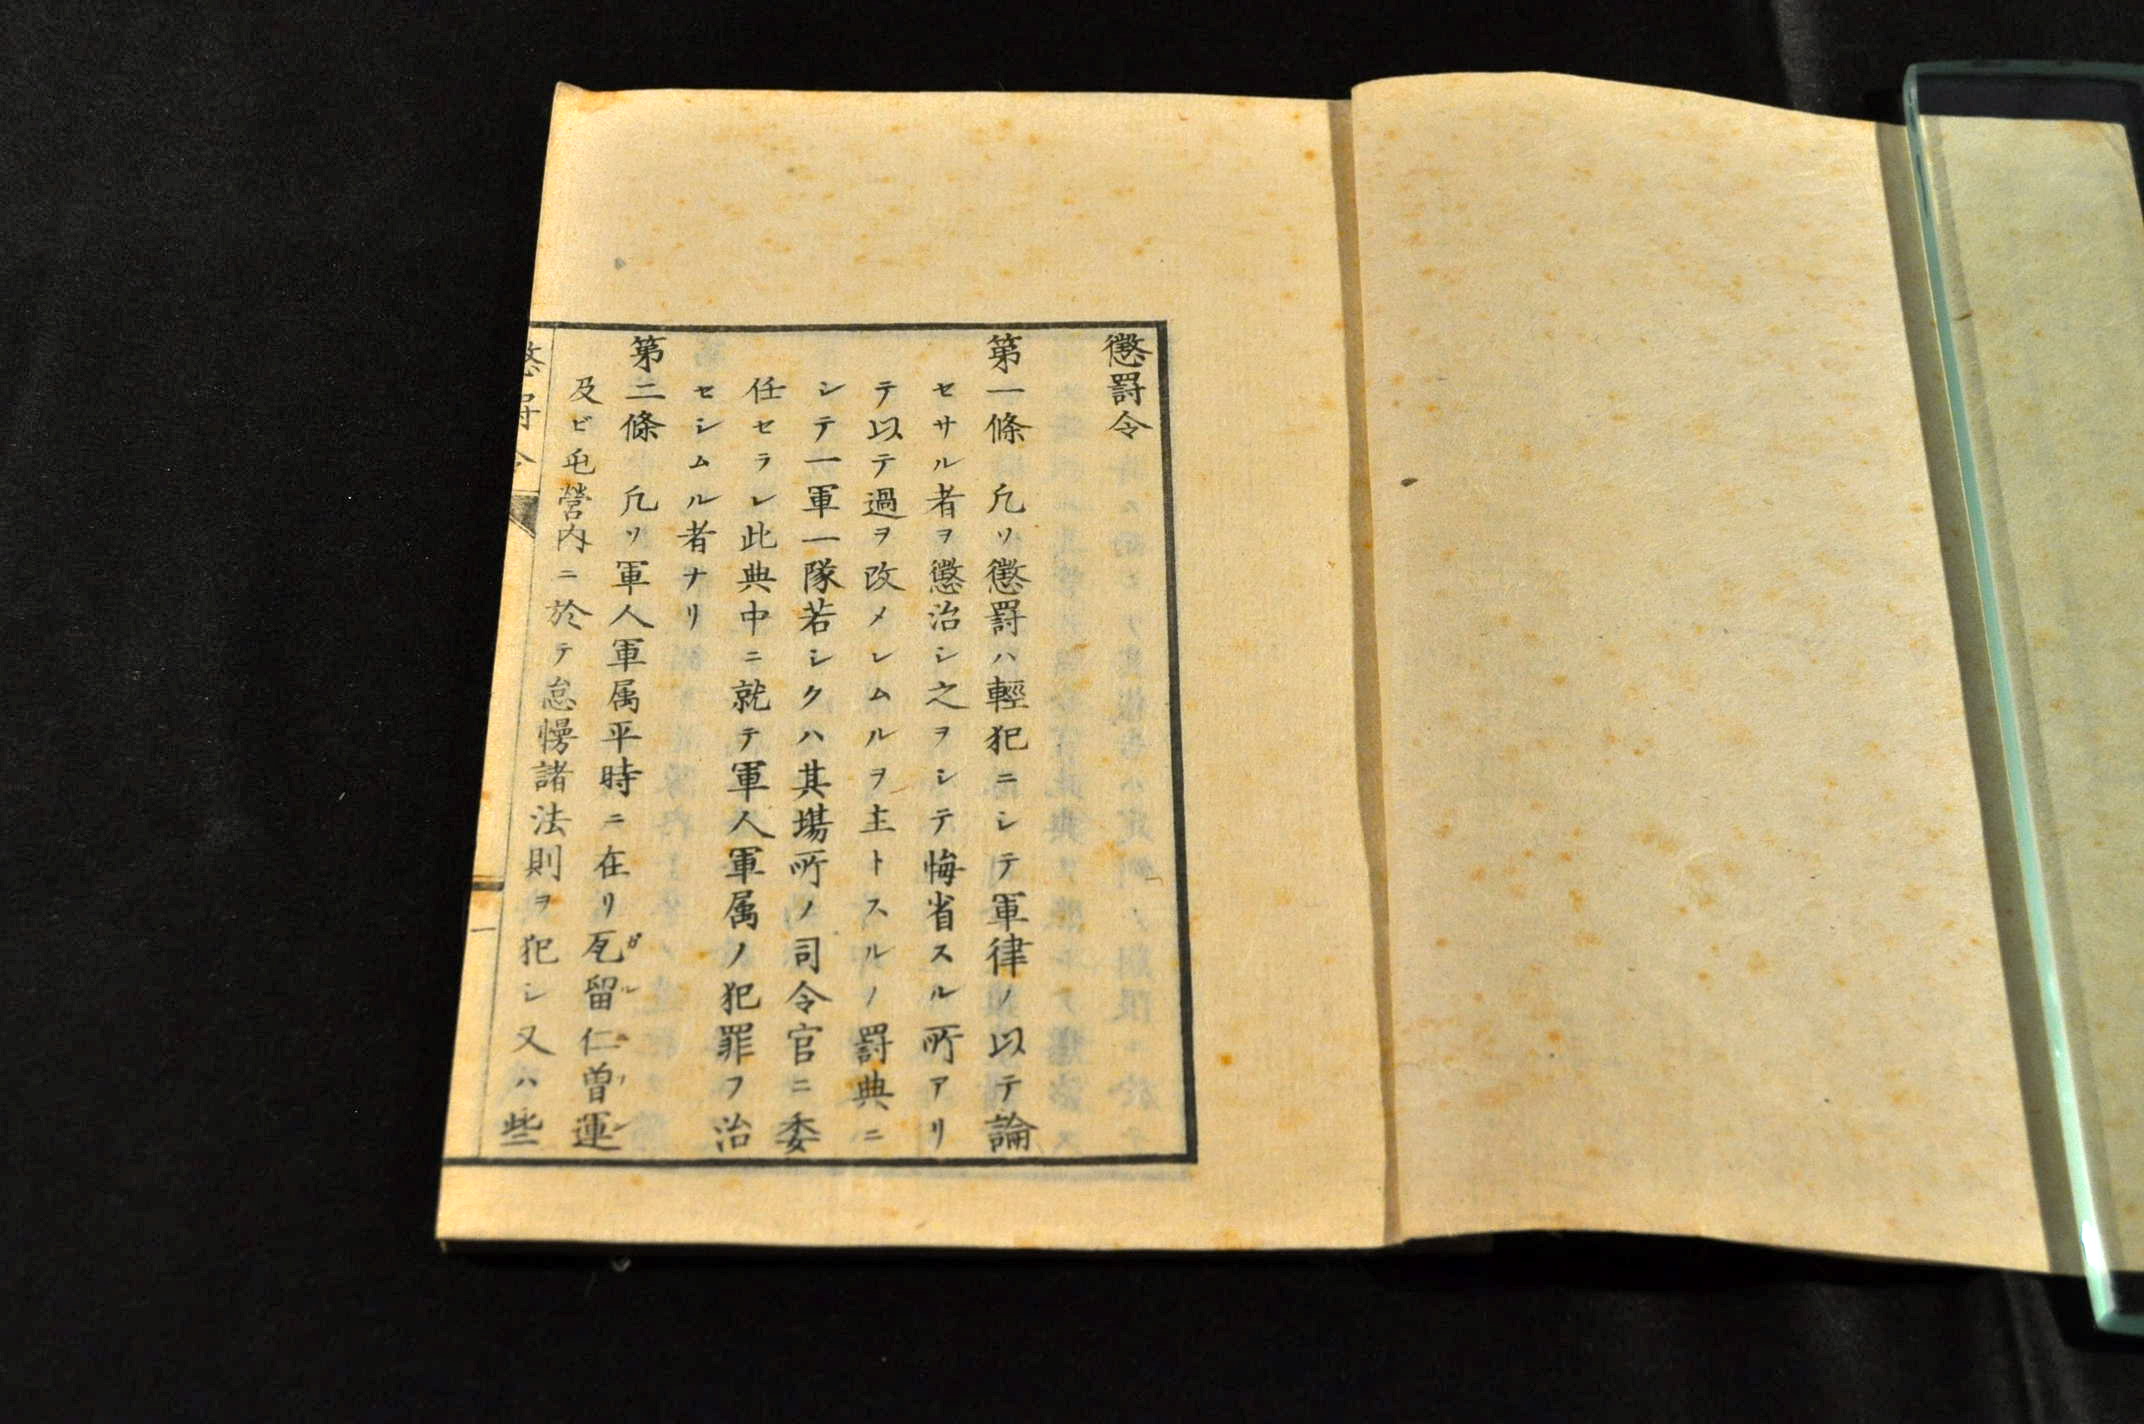 懲罰令
第一條 凡ソ懲罰ハ輕犯ニシテ軍律ノ以テ論
セサル者ヲ懲治シ之ヲシテ悔省スル所アリ
テ以テ過ヲ改メシムルヲ主トスルノ罰典ニ
シテ一軍一隊若シクハ其場所ノ司令官ニ委
任セラレ此典中ニ就テ軍人軍属ノ犯罪ヲ治
セシムル者ナリ
第二條 凡ソ軍人軍属平時ニ在リ瓦留仁曽運
及ビ屯營内ニ於テ怠慢諸法則ヲ犯シ又ハ些
懲罰令
一